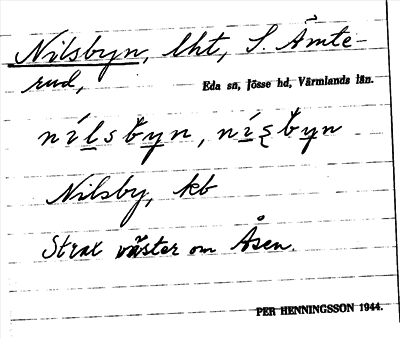 Nilsbyn, lht, S. Ämte-
rud,
Eda sn, Jösse hd, Värmlands län.
Nilsby, kb
Strax väster om Åsen.
PER HENNINGSSON 1944.